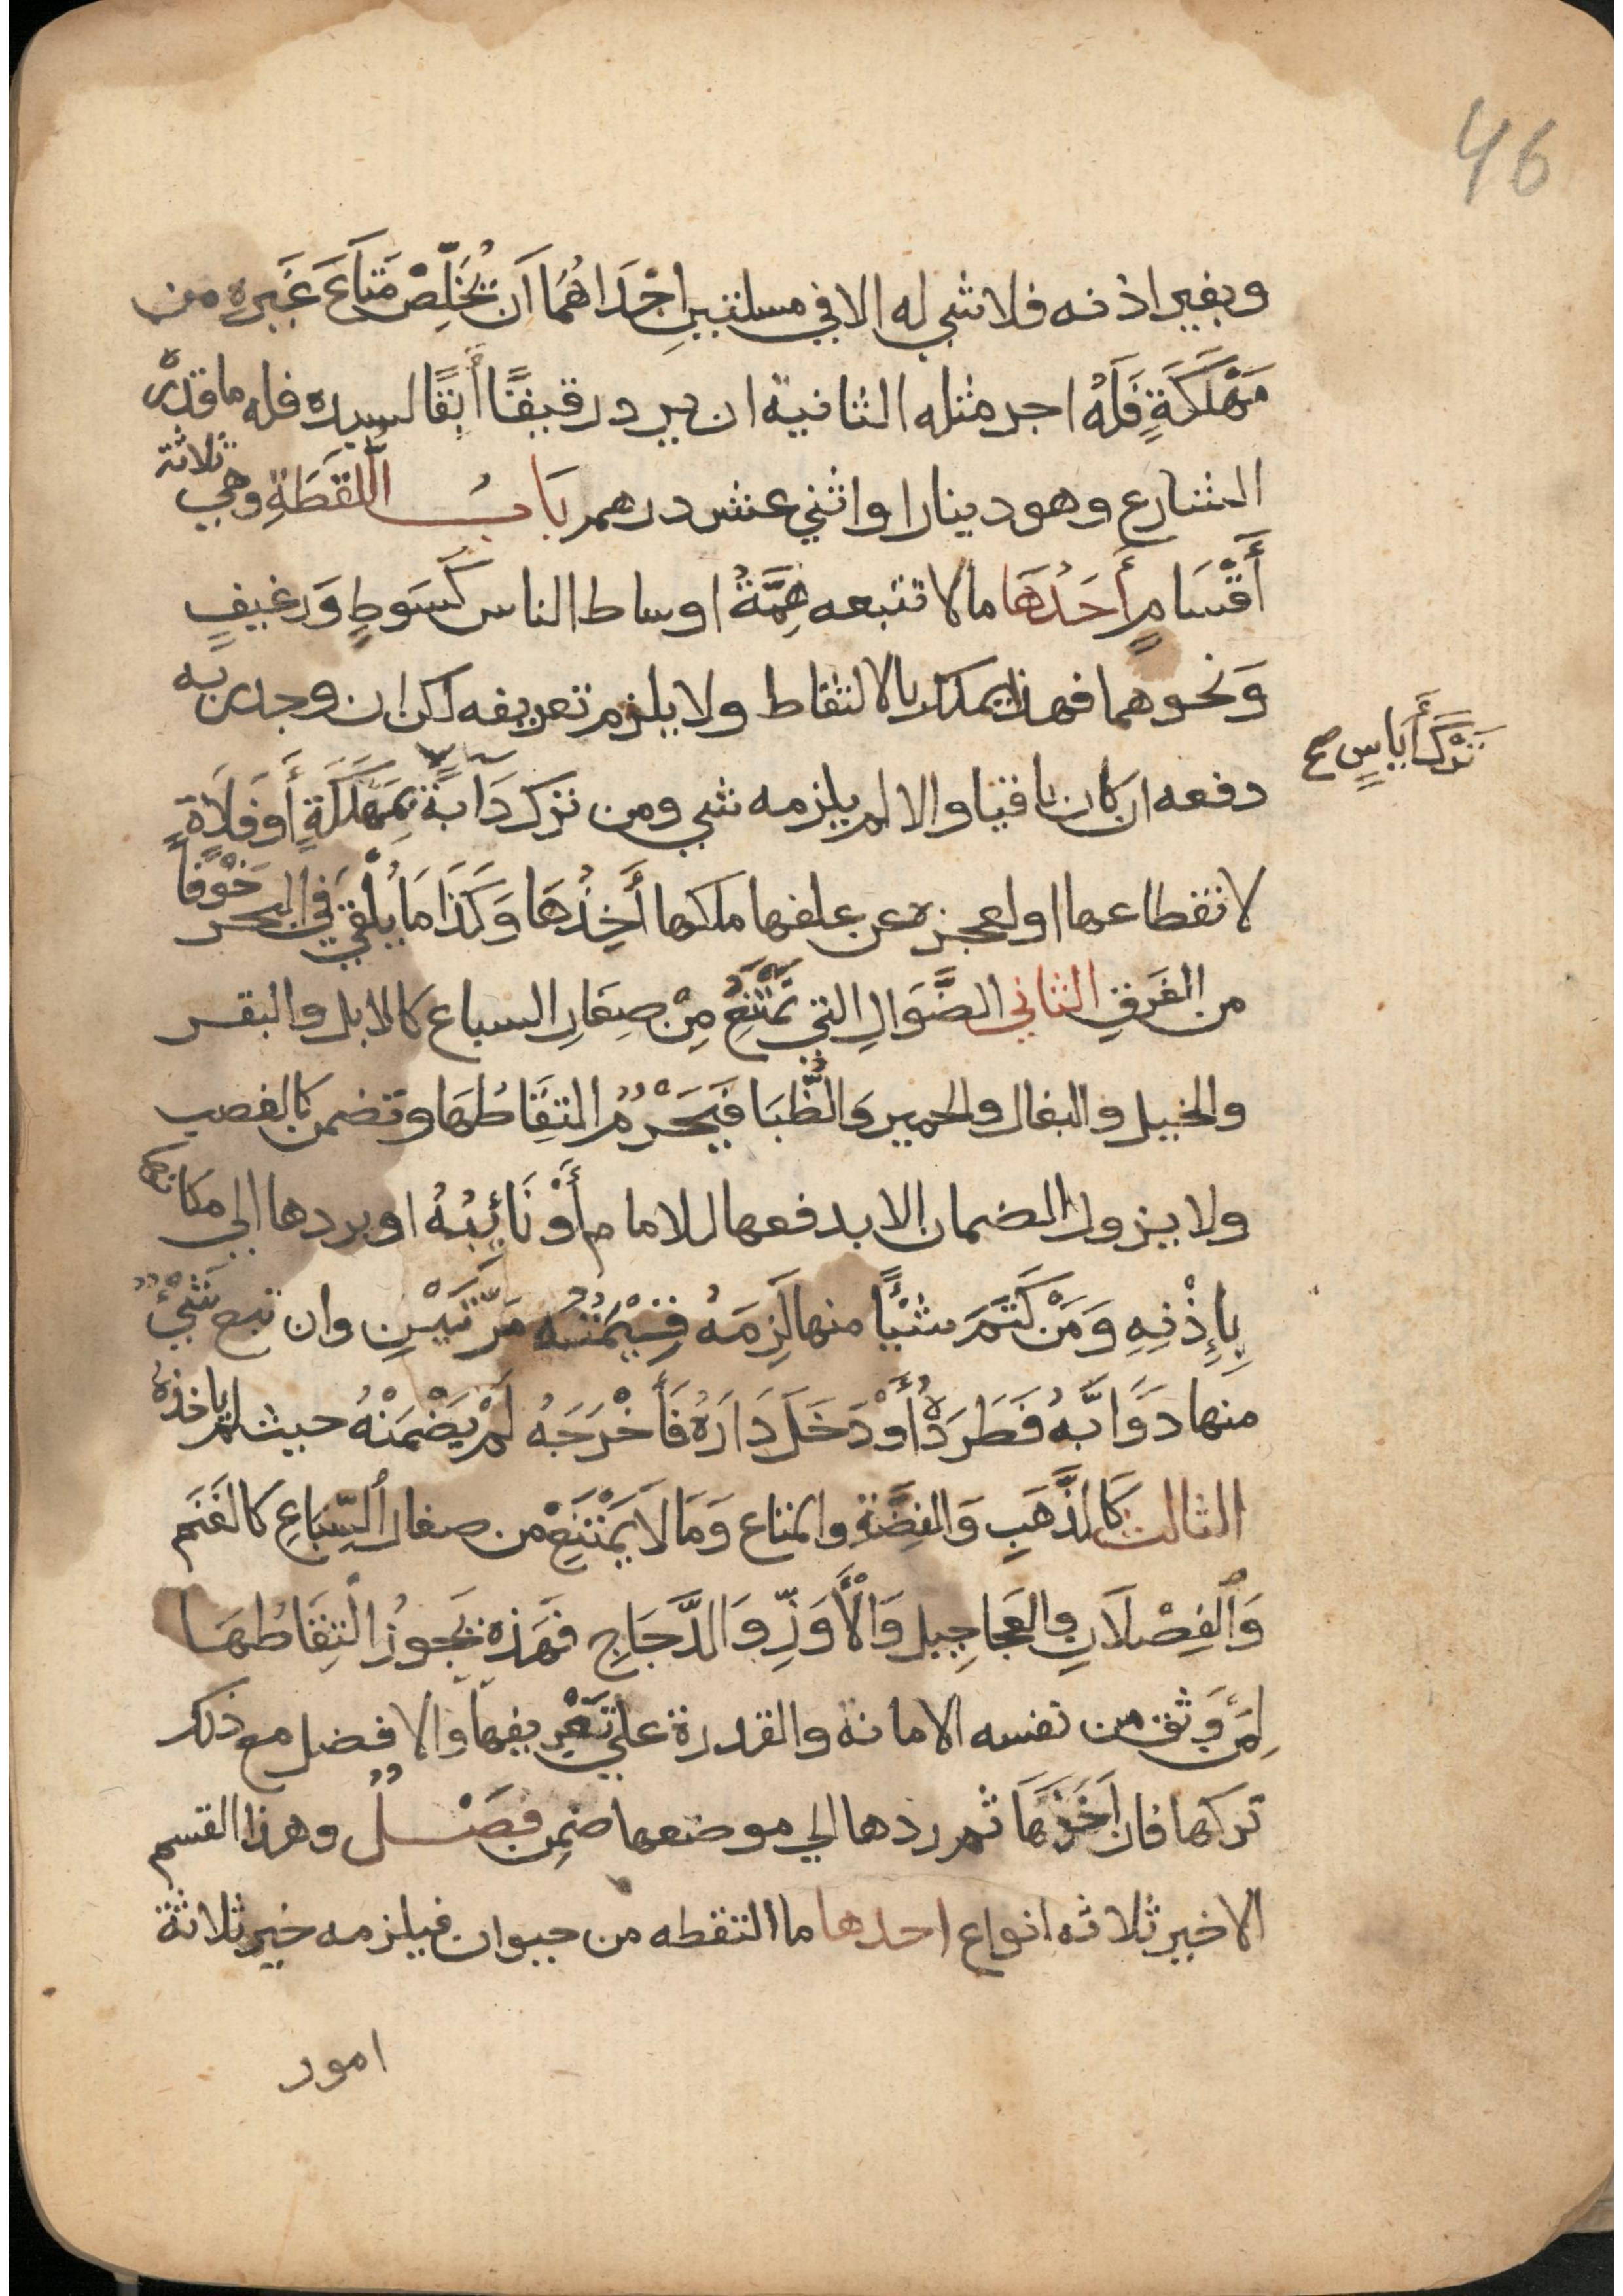 46
وبغير اذنه فلا شي له الا في مسلتين اِحْدَاهُمَا اَنْ يُخَلِّصَ مَتَاعَ غَيرِهِ من
مَهْلَكَةٍ فَلَهُ اجر مثله الثانية ان يرد رقيقًا أَبِقًا لسيده فله ما قدره
الشارع وهو دينارا واثني عشر درهم بَابُ اللُّقَطَةِ وهي ثلاثة
أَقْسَامٍ أَحَدُهَا ما لا تتبعه هِمَّةُ اوساط الناس كَسَوطٍ وَرغيفٍ
وَنحوهما فهذا يملك بالالتقاط ولا يلزم تعريفه لكن ان وجد ربه
دفعه ان كان باقيا والا لم يلزمه شي ومن ترك دَآبَّةً بِمَهْلَكَةٍ أَو فَلَاةٍ
تَرْكَ أَيَاسٍ صح
لانقطاعها او لعجزه عن علفها ملكها أَخِذُهَا وَكَذَا مَا يُلْقَي في البحر خَوْفًا
من الغَرَقِ الثاني الضَّوَالِ التي تَمْتَنِعُ مِنْ صِغَارِ السباع كالابل والبقر
والخيل والبغال والحمير وَالظِّبَا فَيَحْرُمُ التِقَاطُهَا وتضمن كالغصب
ولا يزول الضمان الا بدفعها للامام أَوْ نَائِبِهُ او بردها الي مكانها
بِإِذْنِهِ وَمَنْ كَتَمَ شَيْئًا منها لَزِمَهُ قِيْمَتُهُ مَرَّتَيْنِ وان تبع شَيْءٌ
منها دَوَابَّهُ فَطَرَدَهُ أَوْ دَخَلَ دَارَهُ فَأَخْرَجَهُ لَمْ يَضْمَنْهُ حيث لم ياخذه
الثالث كَالذَّهَبِ وَالفِضَّةِ والمتاع وَمَا لَا يَمْتَنِعْ من صغار السِّبَاعِ كالغَنَمِ
وَالفِصْلَانِ والعَجَاجِيلِ وَالْأَوَزِّ وَالدَّجَاجِ فَهَذِهِ يَجوزُ التِقَاطُهَا
لِمَنْ وَثق من نفسه الامانة والقدرة علي تَعْرِيفها والافضل مع ذلك
تركها فان اَخَذَهَا ثم ردها الي موضعها ضمِن فَصْلٌ وهذا القسم
الاخير ثلاثه انواع احدها ما التقطه من حيوان فيلزمه خير ثلاثة
امور